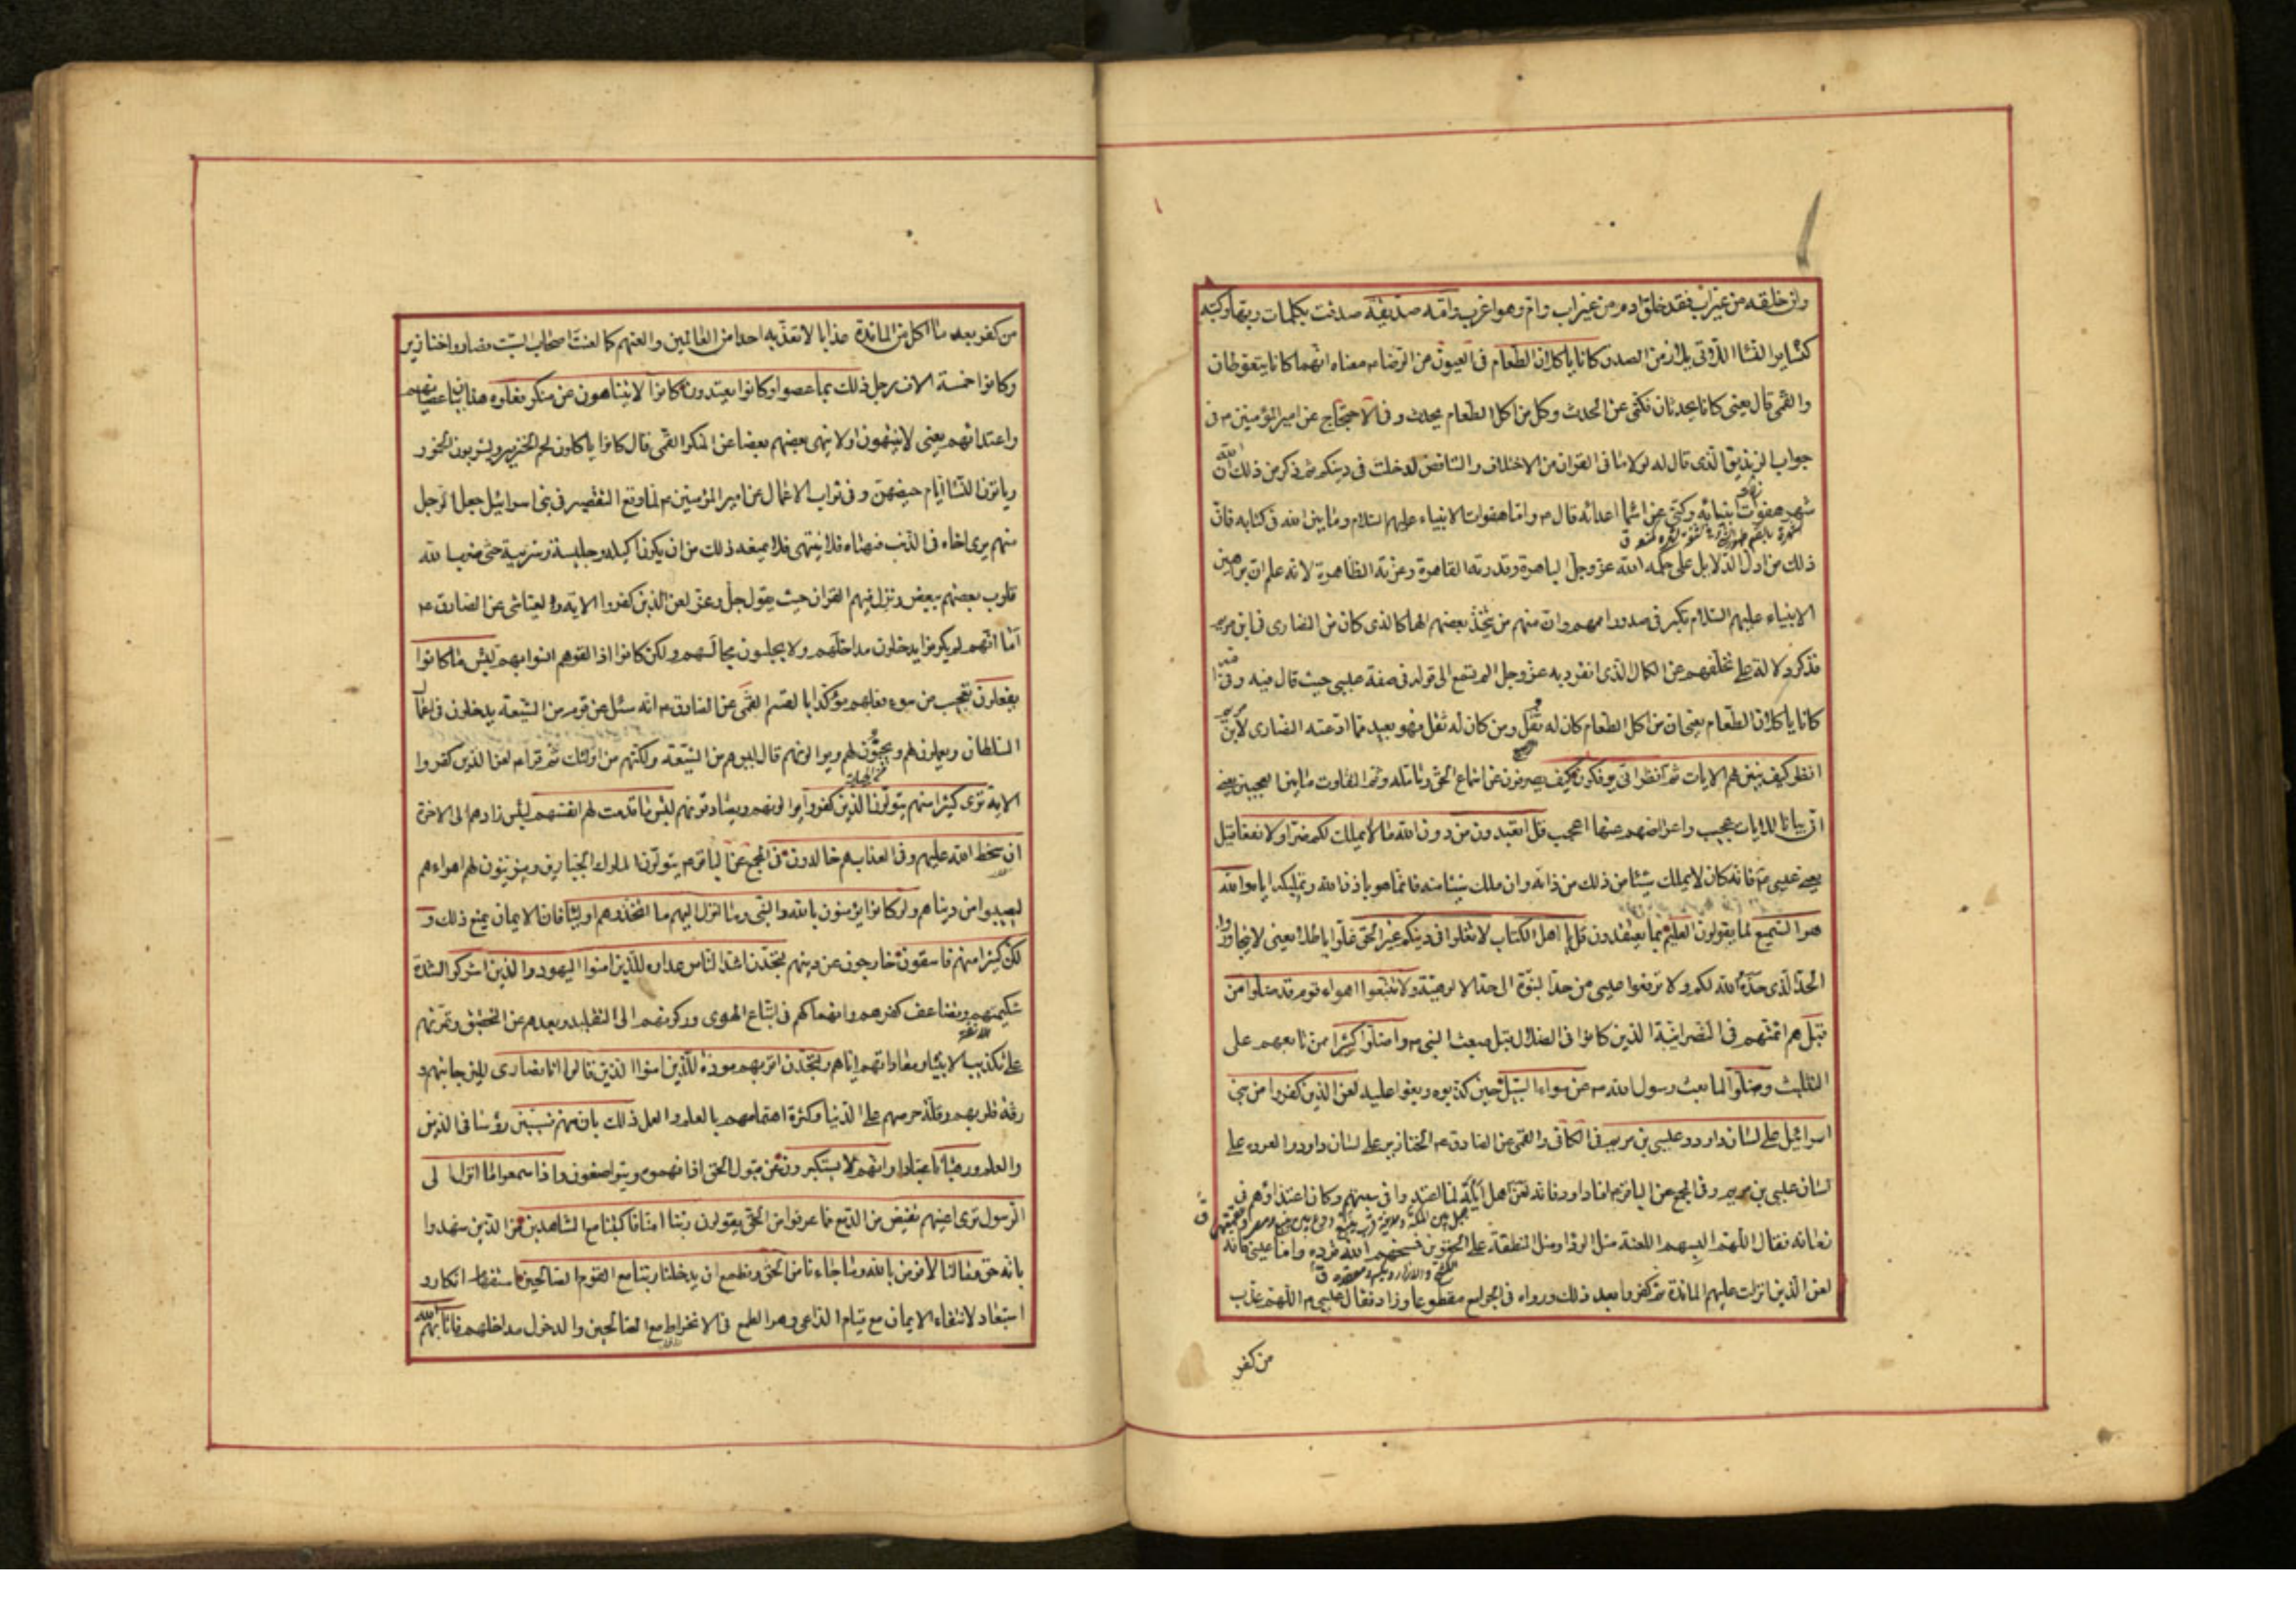 وان خلقه من غير اب فقد خلق ادم من غير اب وام وهو اغرب وامه صديقة صدقت بكلمات ربها وكتبه
كسائر النساء اللاتي يلازمن الصدق كانا ياكلان الطعام فى العيون عن الرضا م معناه انهما كانا يتغوطان
والقمى قال يعنى كانا يحدثان فكنى عن الحدث وكل من اكل الطعام يحدث وفى الاحتجاج عن امير المؤمنين م فى
جواب الزنديق الذى قال له لولا ما فى القران من الاختلاف والتناقض لدخلت فى دينكم ثم ذكر من ذلك ان الله
شهر هفوات انبيائه وكنى عن اسماء اعدائه قال م واما هفوات الانبياء عليهم السلام وما بين الله فى كتابه فان
ذلك من ادل الدلايل على حكمة الله عز وجل الباهرة وقدرته القاهرة وعزته الظاهرة لانه علم ان براهين
الانبياء عليهم السلام تكبر فى صدور اممهم وان منهم من يتخذ بعضهم الها كالذى كان من النصارى فى ابن مريم
فذكر دلالة على تخلفهم عن الكمال الذى انفرد به عز وجل الم تسمع الى قوله فى صفة عيسى حيث قال فيه وفى امه
كانا ياكلان الطعام يعنى ان من اكل الطعام كان له ثفل ومن كان له ثفل فهو بعيد مما ادعته النصارى لابن مريم
انظر كيف نبين لهم الايات ثم انظر انى يؤفكون كيف يصرفون عن استماع الحق وتامله وثم لتفاوت ما بين العجبين يعنى
ان بياننا للايات عجيب واعراضهم عنها اعجب قل اتعبدون من دون الله ما لا يملك لكم ضرا ولا نفعا قيل
يعنى عيسى م فانه كان لا يملك شيئا من ذلك من ذاته وان ملك شيئا منه فانما هو باذن الله وتمليكه اياه والله
هو السميع لما يقولون العليم بما يعتقدون قل يا اهل الكتاب لا تغلوا فى دينكم غير الحق غلوا باطلا يعنى لا تتجاوزوا
الحد الذى حده الله لكم ولا ترفعوا عيسى من حد النبوة الى حد الالوهية ولا تتبعوا اهواء قوم قد ضلوا من
قبل هم ائمتهم فى النصرانية الذين كانوا فى الضلال قبل مبعث النبى م واضلوا كثيرا ممن تابعهم على
التثليث وضلوا لما بعث رسول الله م عن سواء السبيل حين كذبوه وبغوا عليه لعن الذين كفروا من بنى
اسرائيل على لسان داود وعيسى بن مريم فى الكافى والقمى عن الصادق م الخنازير على لسان داود والقردة على
لسان عيسى بن مريم وفى المجمع عن الباقر م اما داود فانه لعن اهل ايلة لما اعتدوا فى سبتهم وكان اعتداؤهم فى
زمانه فقال اللهم البسهم اللعنة مثل الرداء ومثل المنطقة على الحقوين فمسخهم الله قردة واما عيسى فانه
لعن الذين انزلت عليهم المائدة ثم كفروا بعد ذلك ورواه فى الجوامع مقطوعا وزاد فقال عيسى م اللهم عذب
من كفر
من كفر بعد ما اكل من المائدة عذابا لا تعذبه احدا من العالمين والعنهم كما لعنت اصحاب السبت فصاروا خنازير
وكانوا خمسة الاف رجل ذلك بما عصوا وكانوا يعتدون كانوا لا يتناهون عن منكر فعلوه هذا بيان عصيانهم
واعتدائهم يعنى لا ينتهون او لا ينهى بعضهم بعضا عن المنكر القمى قال كانوا ياكلون لحم الخنزير ويشربون الخمور
وياتون النساء ايام حيضهن وفى ثواب الاعمال عن امير المؤمنين م لما وقع التقصير فى بنى اسرائيل جعل الرجل
منهم يرى اخاه فى الذنب فينهاه فلا ينتهى فلا يمنعه ذلك من ان يكون اكيله وجليسه وشريبه حتى ضرب الله
قلوب بعضهم ببعض ونزل فيهم القران حيث يقول جل وعز لعن الذين كفروا الاية والعياشى عن الصادق م
اما انهم لم يكونوا يدخلون مداخلهم ولا يجلسون مجالسهم ولكن كانوا اذا لقوهم انسوا بهم لبئس ما كانوا
يفعلون تعجب من سوء فعلهم مؤكدا بالقسم القمى عن الصادق م انه سئل عن قوم من الشيعة يدخلون فى اعمال
السلطان ويعملون لهم ويحبون لهم ويوالونهم قال ليس هم من الشيعة ولكنهم من اولئك ثم قرا م لعن الذين كفروا
الاية ترى كثيرا منهم يتولون الذين كفروا يوالونهم ويصادقونهم لبئس ما قدمت لهم انفسهم لبئس زادهم الى الاخرة
ان سخط الله عليهم وفى العذاب هم خالدون فى المجمع عن الباقر م يتولون الملوك الجبارين ويزينون لهم اهواءهم
ليصيبوا من دنياهم ولو كانوا يؤمنون بالله والنبى وما انزل اليهم ما اتخذوهم اولياء فان الايمان يمنع ذلك و
لكن كثيرا منهم فاسقون خارجون عن دينهم لتجدن اشد الناس عداوة للذين امنوا اليهود والذين اشركوا لشدة
شكيمتهم وتضاعف كفرهم وانهماكهم فى اتباع الهوى وركونهم الى التقليد وبعدهم عن التحقيق وتمرنهم
على تكذيب الانبياء ومعاداتهم اياهم ولتجدن اقربهم مودة للذين امنوا الذين قالوا انا نصارى للين جانبهم و
رقة قلوبهم وقلة حرصهم على الدنيا وكثرة اهتمامهم بالعلم والعمل ذلك بان منهم قسيسين رؤساء فى الدين
والعلم ورهبانا عبادا وانهم لا يستكبرون عن قبول الحق اذا فهموه ويتواضعون واذا سمعوا ما انزل الى
الرسول ترى اعينهم تفيض من الدمع مما عرفوا من الحق يقولون ربنا امنا فاكتبنا مع الشاهدين من الذين شهدوا
بانه حق وما لنا لا نؤمن بالله وما جاءنا من الحق ونطمع ان يدخلنا ربنا مع القوم الصالحين استفهام انكار و
استبعاد لانتفاء الايمان مع قيام الداعى وهو الطمع فى الانخراط مع الصالحين والدخول مداخلهم فاثابهم الله